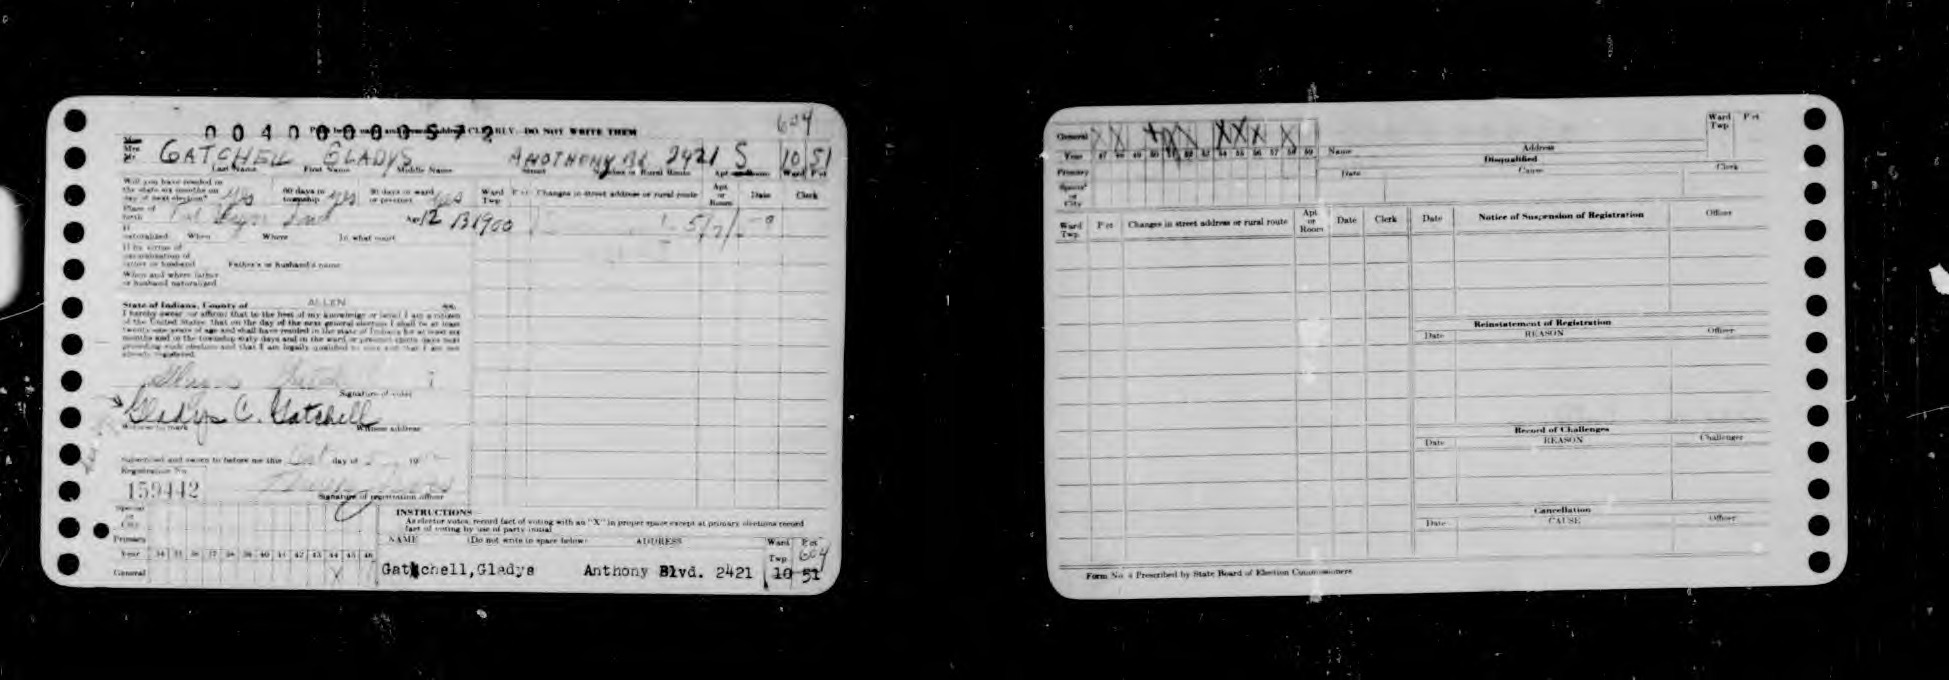 604
0040000057 2
CLEARLY DO NOT WRITE THEM
Mrs
Mr.
GATCHELL GLADYS ANOTHONY BL 2421 S 10 51
Last Name First Name Middle Name Street Number or Rural Route Apt or Room Ward Pct
Will you have resided in
the state six months on
day of next election? Yes 60 days in township Yes 30 days in ward or precinct Yes
Ward Twp Pct Changes in street address or rural route Apt or Room Date Clerk
Place of birth Ind Age B1900
If naturalized When Where In what court
If by virtue of
naturalization of
father or husband Father's or husband's name
When and where father
or husband naturalized
State of Indiana, County of ALLEN ss.
I hereby swear (or affirm) that to the best of my knowledge or belief I am a citizen
of the United States; that on the day of the next general election I shall be at least
twenty-one years of age and shall have resided in the state of Indiana for at least six
months and in the township sixty days and in the ward or precinct thirty days next
preceding such election and that I am legally qualified to vote and that I am not
already registered.
Signature of voter
Gladys C. Gatchell
Witness to mark Witness address
Subscribed and sworn to before me this day of 19
Registration No.
159442
Signature of registration officer
Special or City
Primary
Year 34 35 36 37 38 39 40 41 42 43 44 45 46
General X
INSTRUCTIONS
As elector votes, record fact of voting with an "X" in proper space except at primary elections record
fact of voting by use of party initial
NAME (Do not write in space below) ADDRESS Ward Twp Pct
604
Gatchell,Gladys Anthony Blvd. 2421 10 51
General X X X X X X X X
Year 47 48 49 50 51 52 53 54 55 56 57 58 59
Primary
Special or City
Name Address Ward Twp Pct
Disqualified
Date Cause Clerk
Ward Twp. Pct Changes in street address or rural route Apt or Room Date Clerk
Date Notice of Suspension of Registration Officer
Reinstatement of Registration
Date REASON Officer
Record of Challenges
Date REASON Challenger
Cancellation
Date CAUSE Officer
Form No. 4 Prescribed by State Board of Election Commissioners